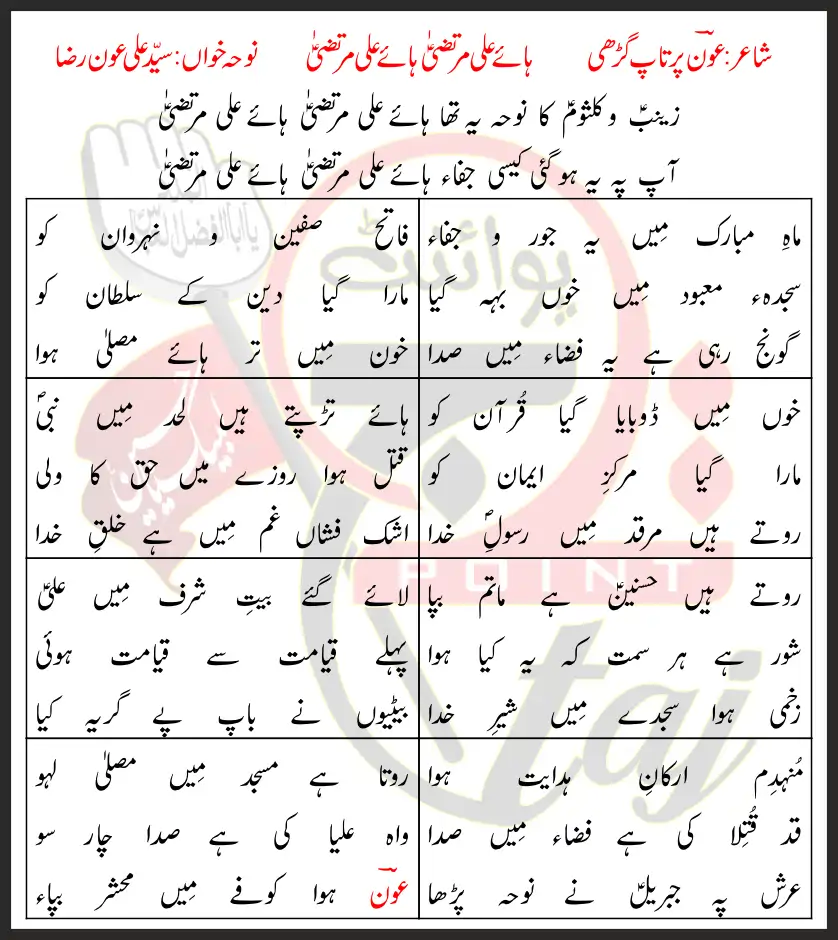 شاعر: عونؔ پرتاپ گڑھی ہائے علی مرتضیٰؑ ہائے علی مرتضیٰؑ نوحہ خواں: سیّد علی عون رضا
زینبؑ و کلثومؑ کا نوحہ یہ تھا ہائے علی مرتضیٰؑ ہائے علی مرتضیٰؑ
آپ پہ یہ ہو گئی کیسی جفاء ہائے علی مرتضیٰؑ ہائے علی مرتضیٰؑ
ماہِ مبارک مِیں یہ جور و جفاء
سجدہء معبود مِیں خوں بہہ گیا
گونج رہی ہے یہ فضاء مِیں صدا
فاتح صفین و نہروان کو
مارا گیا دین کے سلطان کو
خون مِیں تر ہائے مصلیٰ ہوا
خوں مِیں ڈوبایا گیا قُرآن کو
مارا گیا مرکزِ ایمان کو
روتے ہیں مرقد مِیں رسولِؐ خدا
ہائے تڑپتے ہیں لحد مِیں نبیؐ
قتل ہوا روزے میں حق کا ولی
اشک فشاں غم مِیں ہے خلقِ خدا
روتے ہیں حسنینؑ ہے ماتم بپا
شور ہے ہر سمت کہ یہ کیا ہوا
زخمی ہوا سجدے مِیں شیرِ خدا
لائے گئے بیتِ شرف مِیں علیؑ
پہلے قیامت سے قیامت ہوئی
بیٹیوں نے باپ پے گریہ کیا
مُنہدِم ارکانِ ہدایت ہوا
قد قُتِلا کی ہے فضاء مِیں صدا
عرش پہ جبریلؑ نے نوحہ پڑھا
روتا ہے مسجد مِیں مصلیٰ لہو
واہ علیا کی ہے صدا چار سو
عونؔ ہوا کوفے مِیں محشر بپاء
پوائنٹ
POINT
taj